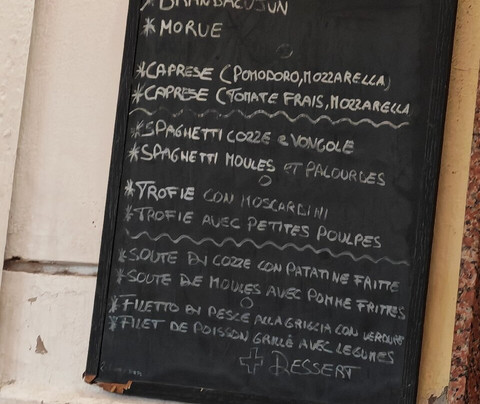 *BRANDACUJUN
*MORUE
*CAPRESE (POMODORO, MOZZARELLA)
*CAPRESE (TOMATE FRAIS, MOZZARELLA
*SPAGHETTI COZZE e VONGOLE
*SPAGHETTI MOULES et PALOURDES
*TROFIE CON MOSCARDINI
*TROFIE AVEC PETITES POULPES
*SOUTE DI COZZE CON PATATINE FRITTE
*SOUTE DE MOULES AVEC POMME FRITTES
*FILETTO DI PESCE ALLA GRIGLIA CON VERDURE
*FILET DE POISSON GRILLÈ AVEC LEGUMES
+ DESSERT